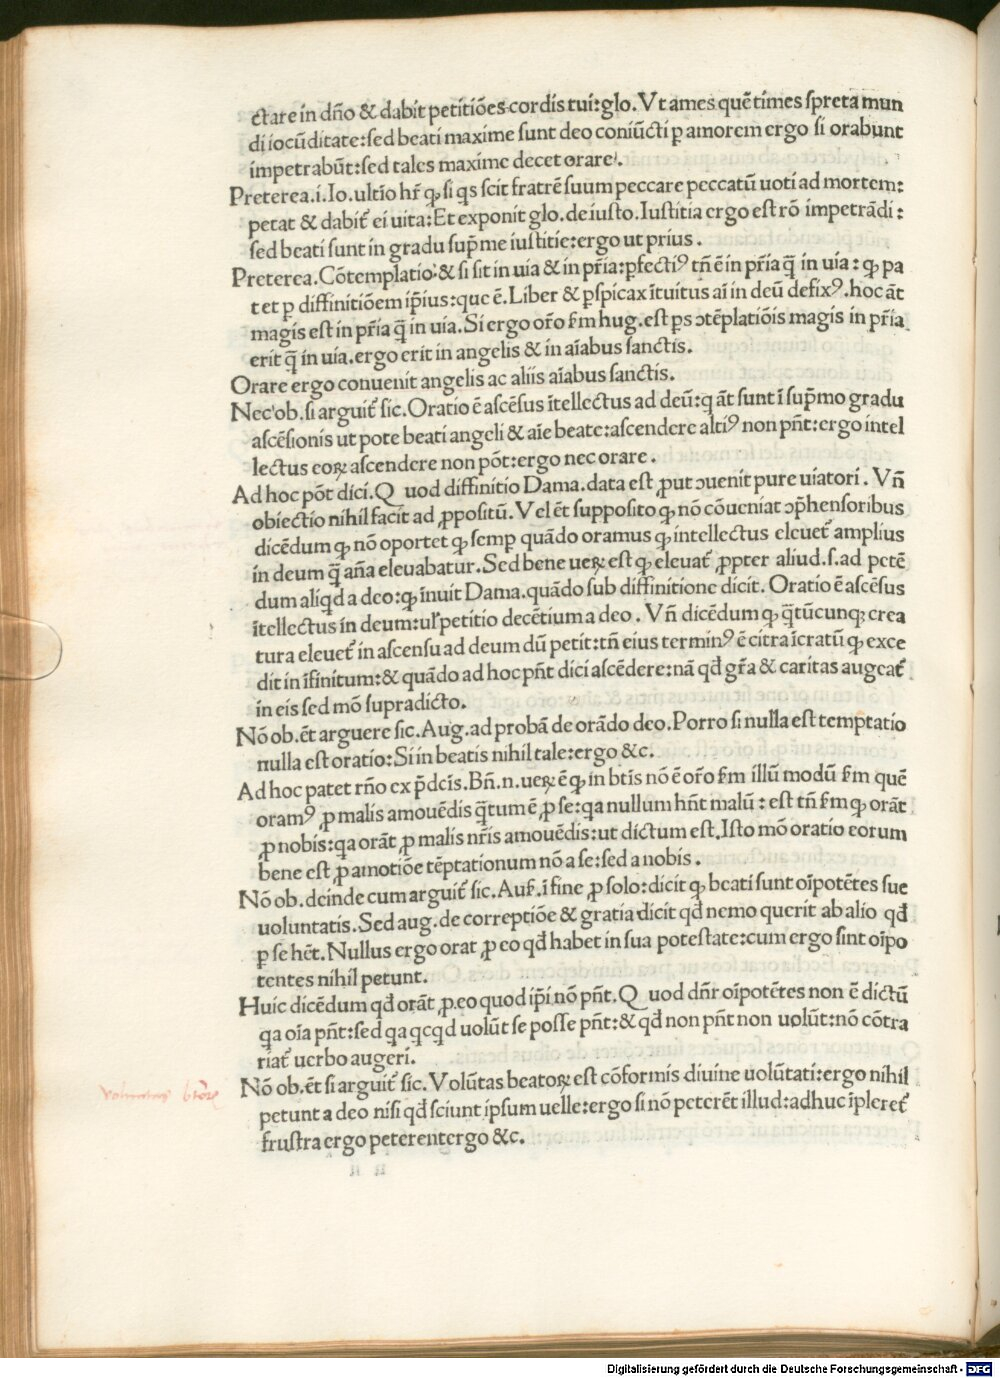 ctare in dño & dabit petitiões cordis tui:glo.Vt ames quẽ times spreta mun
di iocũditate:sed beati maxime sunt deo coniũcti ꝑ amorem ergo si orabunt
impetrabũt:sed tales maxime decet orare.
Preterea.i.Io.ultĩo hr̃ ꝙ si qs scit fratrẽ suum peccare peccatũ uoti ad mortem:
petat & dabit̃ ei uita:Et exponit glo.de iusto.Iustitia ergo est rõ impetrãdi:
sed beati sunt in gradu sup̃me iustitie:ergo ut prius.
Preterea.Cõtemplatio:& si sit in uia & in pr̃ia:ꝑfectiꝰ tñ ẽ in pr̃ia q̃ in uia: ꝙ pa
tet ꝑ diffinitiõem ip̃ius:que ẽ.Liber & ꝑspicax ĩtuitus aĩ in deũ defixꝰ.hoc ãt
magis est in pr̃ia q̃ in uia.Si ergo or̃o ẜm hug.est ꝑs ↄtẽplatiõis magis in pr̃ia
erit q̃ in uia.ergo erit in angelis & in aĩabus sanctis.
Orare ergo conuenit angelis ac aliis aĩabus sanctis.
Nec ob.si arguit̃ sic.Oratio ẽ ascẽsus ĩtellectus ad deũ:q ãt sunt ĩ sup̃mo gradu
ascẽsionis ut pote beati angeli & aĩe beate:ascendere altiꝰ non pñt:ergo intel
lectus eoꝝ ascendere non põt:ergo nec orare.
Ad hoc põt dici.Q uod diffinitio Dama.data est ꝓut ↄuenit pure uiatori. Vñ
obiectio nihil facit ad ꝓpositũ.Vel ẽt supposito ꝙ nõ cõueniat ↄp̃hensoribus
dicẽdum ꝙ nõ oportet ꝙ semꝑ quãdo oramus ꝙ intellectus eleuet̃ amplius
in deum q̃ aña eleuabatur.Sed bene ueꝝ est ꝙ eleuat̃ ꝓpter aliud.s.ad petẽ
dum aliqd a deo:ꝙ ĩnuit Dama.quãdo sub diffinitione dicit. Oratio ẽ ascẽsus
ĩtellectus in deum:ul̃ petitio decẽtium a deo. Vñ dicẽdum ꝙ q̃tũcunqꝫ crea
tura eleuet̃ in ascensu ad deum dũ petit:tñ eius terminꝰ ẽ citra ĩcratũ ꝙ exce
dit in ĩfinitum:& quãdo ad hoc pñt dici ascẽdere:nã qđ gr̃a & caritas augeat̃
in eis sed mõ supradicto.
Nõ ob.ẽt arguere sic.Aug.ad probã de orãdo deo.Porro si nulla est temptatio
nulla est oratio:Si in beatis nihil tale:ergo &c.
Ad hoc patet rño ex p̃dcĩs.Bñ.n.ueꝝ ẽ ꝙ in btĩs nõ ẽ or̃o ẜm illũ modũ ẜm quẽ
oramꝰ ꝓ malis amouẽdis q̃tum ẽ ꝓ se:qa nullum hñt malũ: est tñ ẜm ꝙ orãt
ꝓ nobis:qa orãt ꝓ malis nr̃is amouẽdis:ut dictum est.Isto mõ oratio eorum
bene est ꝓ amotiõe tẽptationum nõ a se:sed a nobis.
Nõ ob.deinde cum arguit̃ sic.Auẜ.ĩ fine ꝓsolo:dicit ꝙ beati sunt oĩpotẽtes sue
uoluntatis.Sed aug.de correptiõe & gratia dicit qđ nemo querit ab alio qđ
ꝑ se hẽt.Nullus ergo orat ꝓ eo qđ habet in sua potestate:cum ergo sint oĩpo
tentes nihil petunt.
Huic dicẽdum qđ orãt ꝓ.eo quod ip̃i nõ pñt.Q uod dñr oĩpotẽtes non ẽ dictũ
qa oĩa pñt:sed qa qcqd uolũt se posse pñt:& qđ non pñt non uolũt:nõ cõtra
riat̃ uerbo augeri.
Nõ ob.ẽt si arguit̃ sic. Volũtas beatoꝝ est cõformis diuine uolũtati:ergo nihil
petunt a deo nisi qđ sciunt ipsum uelle:ergo si nõ peterẽt illud:adhuc ĩpleret̃
frustra ergo peterentergo &c.
Digitalisierung gefördert durch die Deutsche Forschungsgemeinschaft - DFG